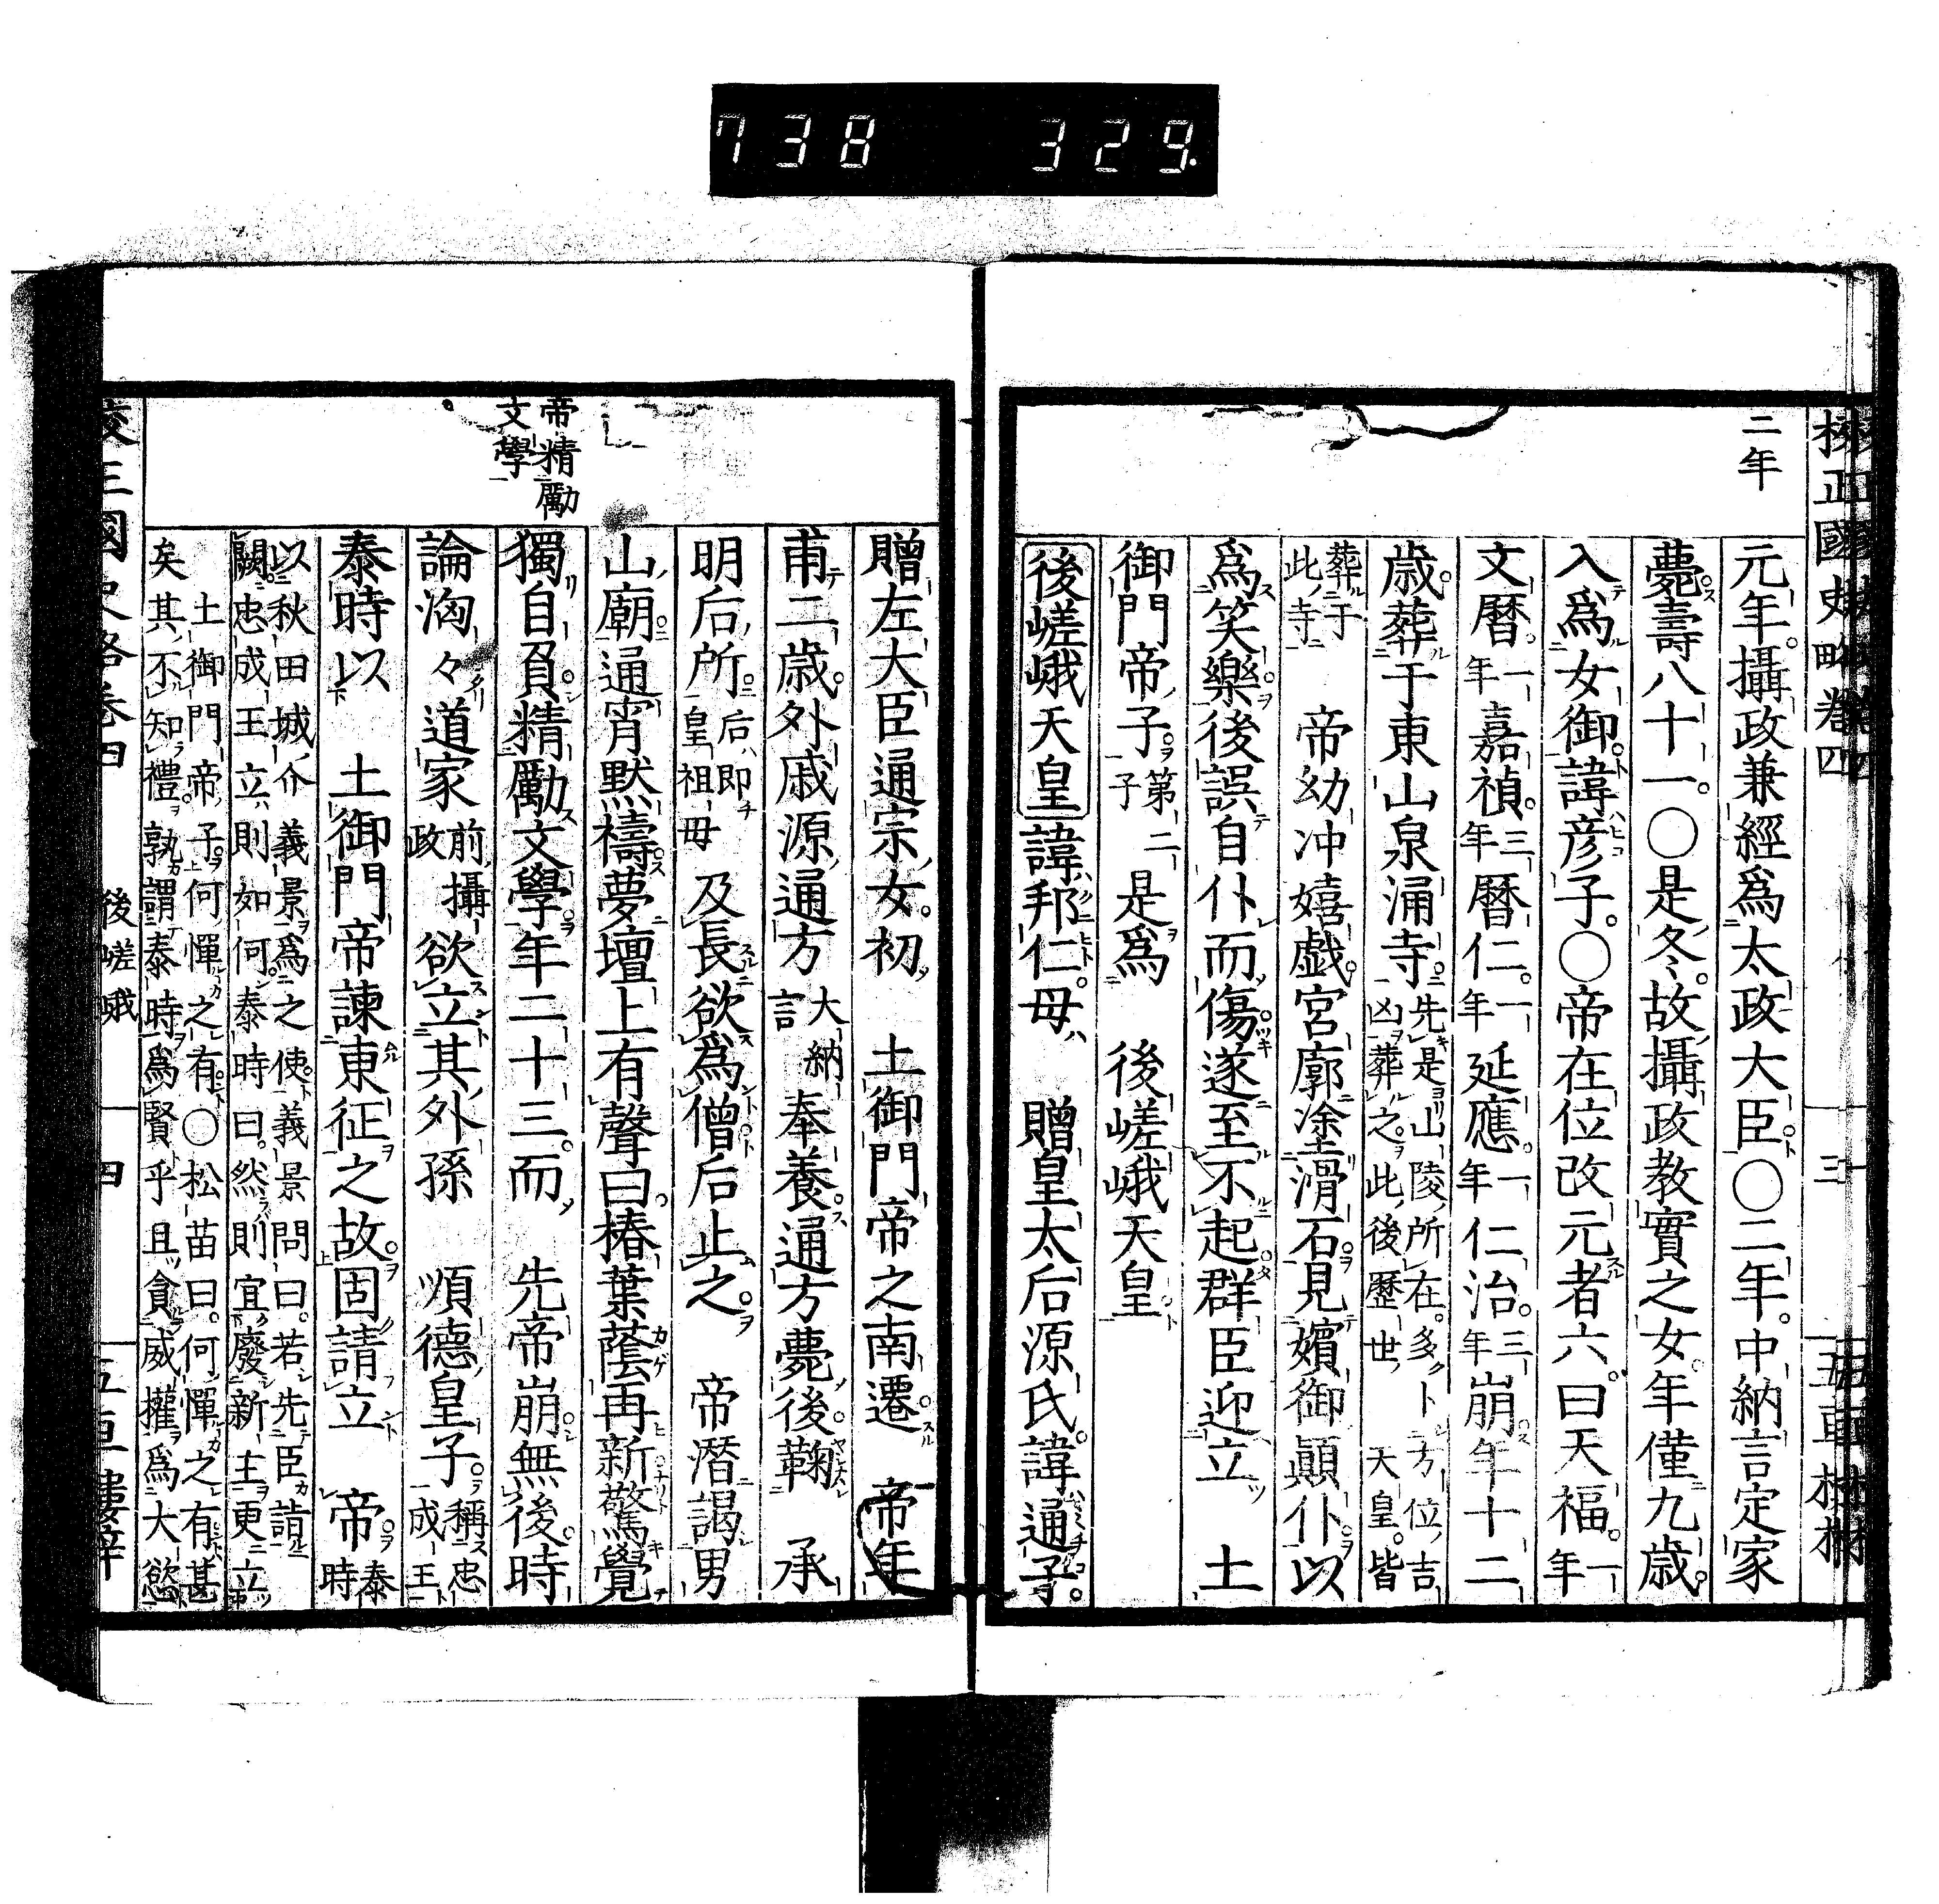 738 329.
校正國史略卷四 三 五車樓梓
二年
元年。攝政兼經爲太政大臣○二年。中納言定家
薨。壽八十一。○是冬。故攝政教實之女。年僅九歲。
入爲女御。諱彦子。○帝在位改元者六。曰天福。一年
文曆。一年嘉禎。三年曆仁。一年延應。一年仁治。三年崩年十二
歲。葬于東山泉涌寺。先是山陵所在。多卜方位吉凶葬之。此後歷世天皇。皆
葬于此寺 帝幼冲嬉戯。宮廓塗滑石。見嬪御顚仆。以
爲笑樂。後誤自仆而傷。遂至不起。群臣迎立 土
御門帝子。第二子是爲 後嵯峨天皇
後嵯峨天皇諱邦仁。母 贈皇太后源氏。諱通子。
帝精勵文學
贈左大臣通宗女。初 土御門帝之南遷 帝年
甫二歲。外戚源通方大納言奉養。通方薨後。鞠 承
明后所。后即皇祖母及長欲爲僧。后止之。 帝潛謁男
山廟。通宵默禱。夢壇上有聲曰。椿葉蔭再新。驚覺
獨自負。精勵文學。年二十三。而 先帝崩無後。時
論洶々。道家前攝政欲立其外孫 順德皇子。稱忠成王
泰時以 土御門帝諫東征之故。固請立 帝。泰時
以秋田城介義景爲之使。義景問曰。若先臣請
闕。忠成王立則如何。泰時曰。然則宜廢新主更立
土御門帝子。何憚之有○松苗曰。何憚之有。甚
矣其不知禮。孰謂泰時爲賢乎。且貪威攉爲大慾
校正國史略卷四 後嵯峨 四 五車樓梓